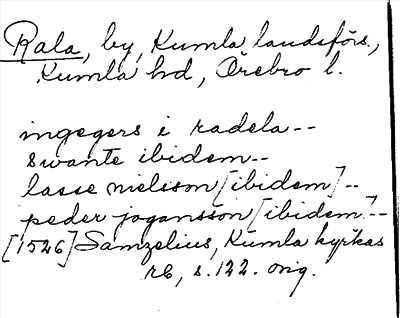 Rala, by, Kumla landsförs.,
Kumla hd, Örebro l.
ingegers i radela--
swante ibidem--
lasse nielsson [ibidem]--
peder jogansson [ibidem]--
[1526] Samzelius, Kumla kyrkas
rb, s. 122. orig.